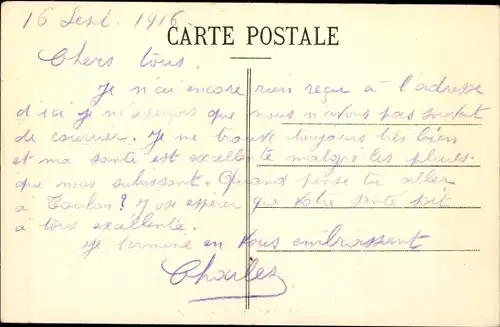 16 Sept. 1916.
CARTE POSTALE
Chers tous.
Je n'ai encore rien reçu à l'adresse
d'ici je m'aperçois que nous n'avons pas
de courrier. Je me trouve toujours très bien
et ma santé est excellente malgré les pluies.
que nous subissont. Quand pense tu aller
à Toulon? J'ose espérer que votre santé soit
à tous excellente.
Je termine en vous embrassant
Charles